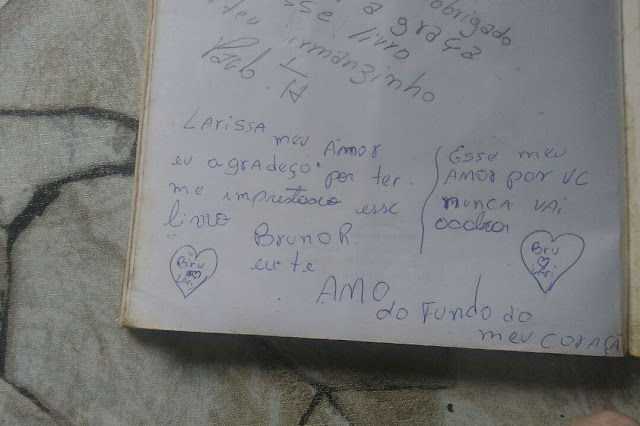 obrigado
esse a graça
livro
irmãnzinho
Larissa
meu Amor
eu agradeço por ter
me imprestado esse
livro
Bruno R.
eu te
AMO
do Fundo do
meu CORAÇÃ
Esse meu
AMOR por VC
NUNCA VAI
Bru
Lari
Bru
Lari